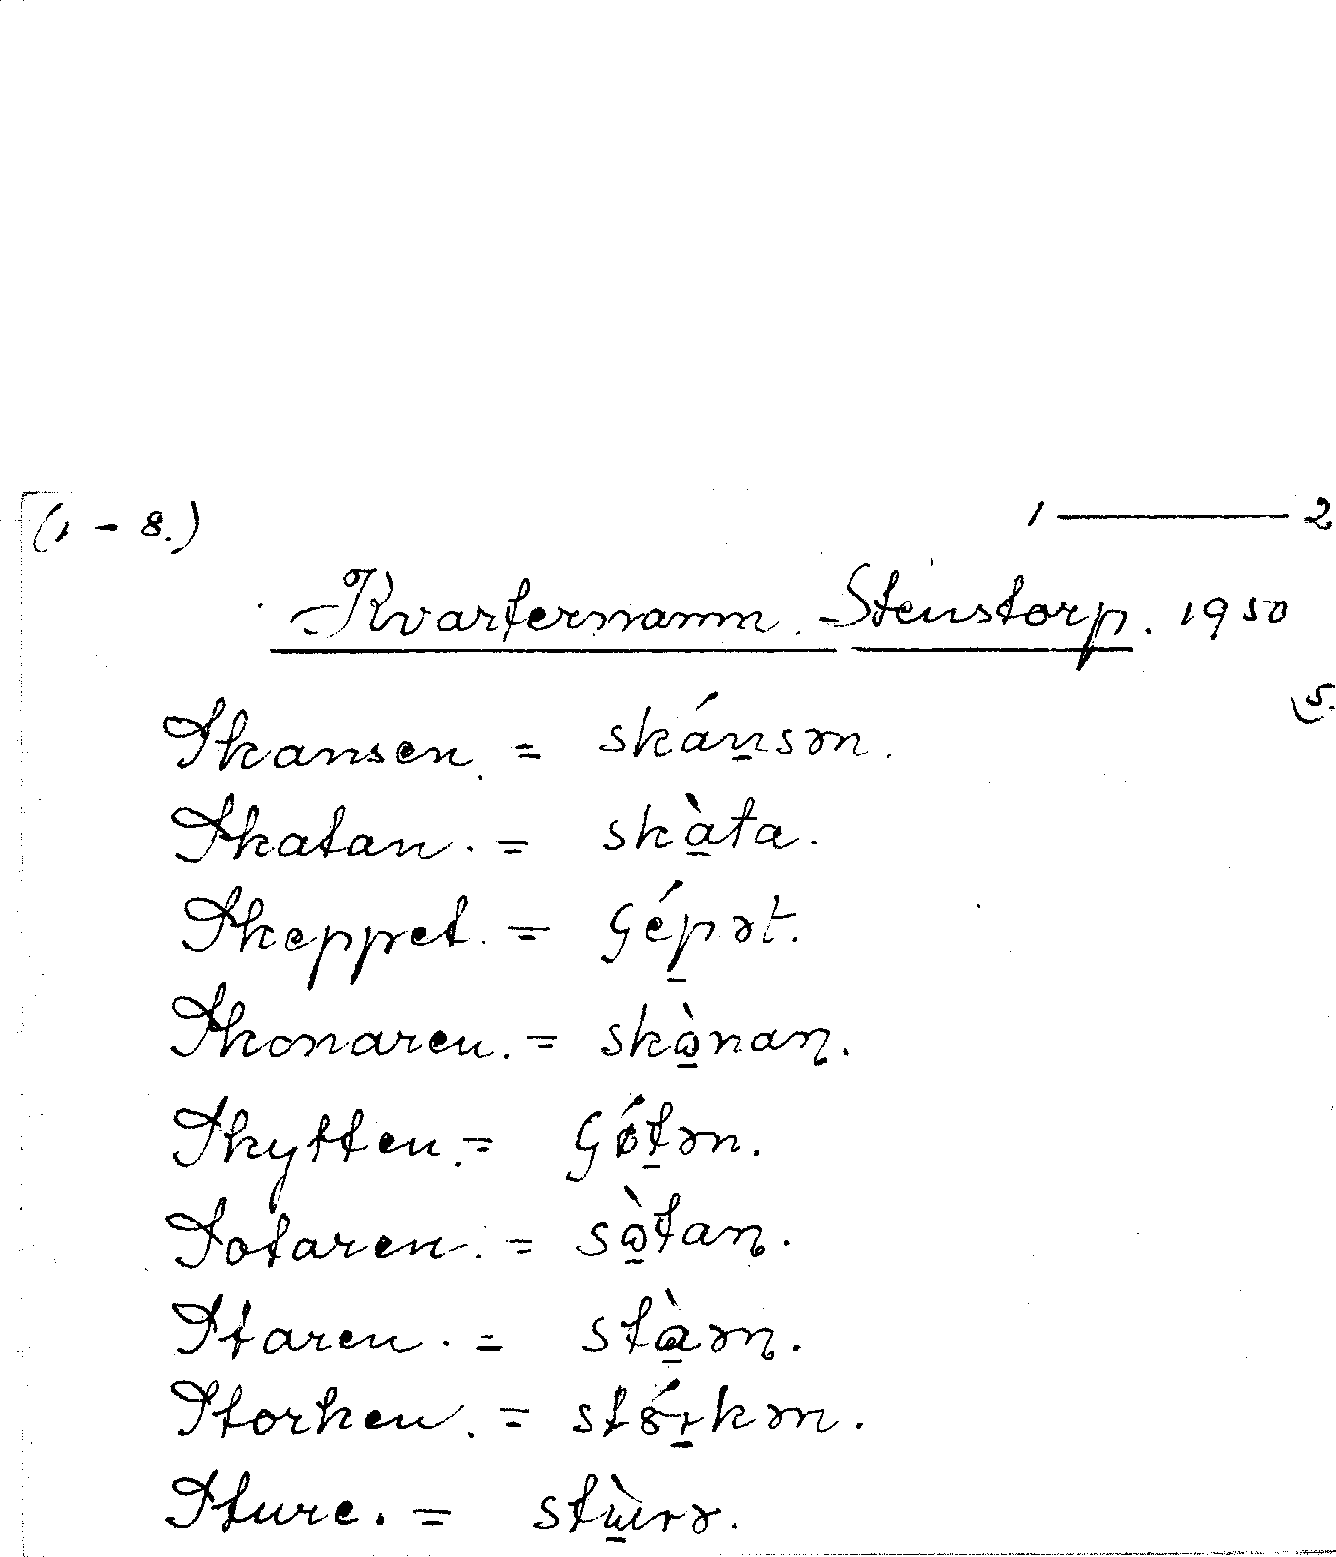 (1 - 8.)
1 ——— 2
Kvarternamn. Stenstorp. 1950
S.
Skansen. = skán̲sən.
Skatan. = skà̲ta.
Skeppet. = ʂép̲ət.
Skonaren. = skɷ̲̀naɳ.
Skytten. = ʂǿt̲ən.
Sotaren. = sɷ̲̀taɳ.
Staren. = stà̲əɳ.
Storken. = stór̲kən.
Sture. = stɯ̲̀rə.